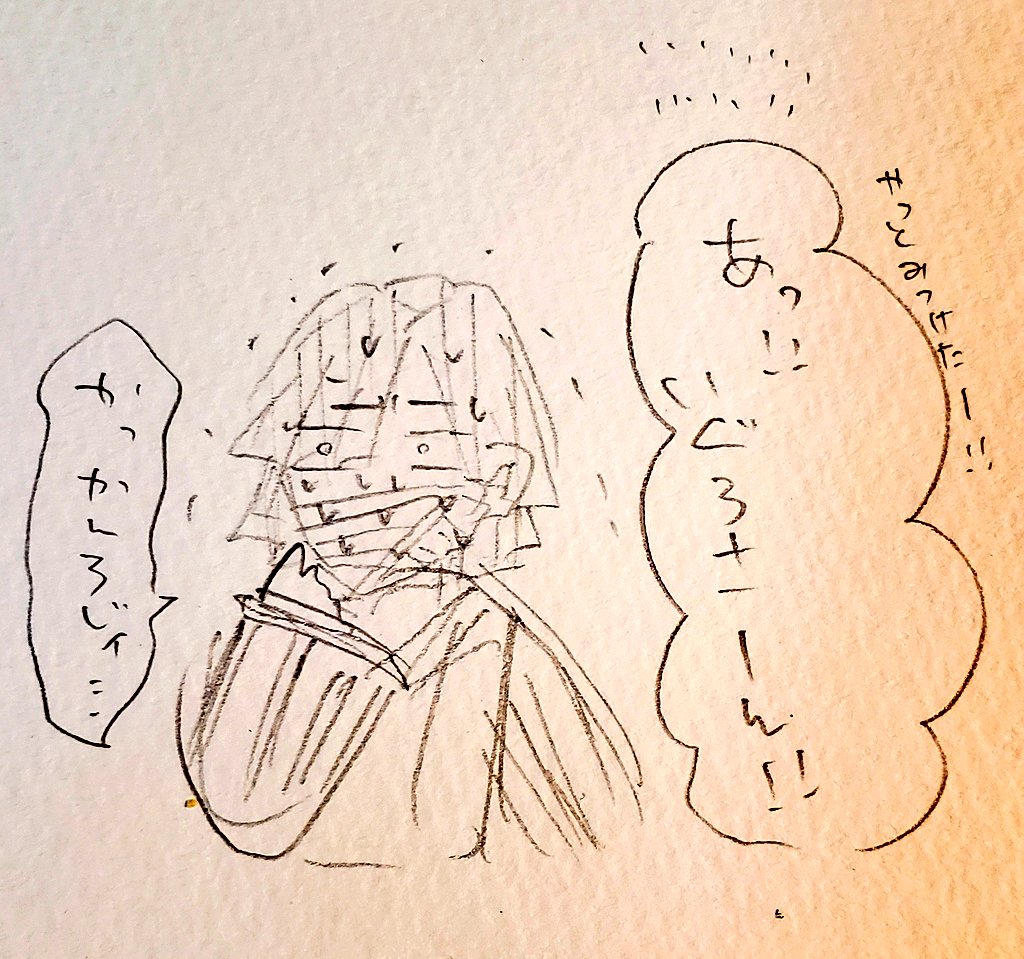 やっとみつけたー!!
あっ!!
いぐろさーーん!!
かっ
かんろじィ…